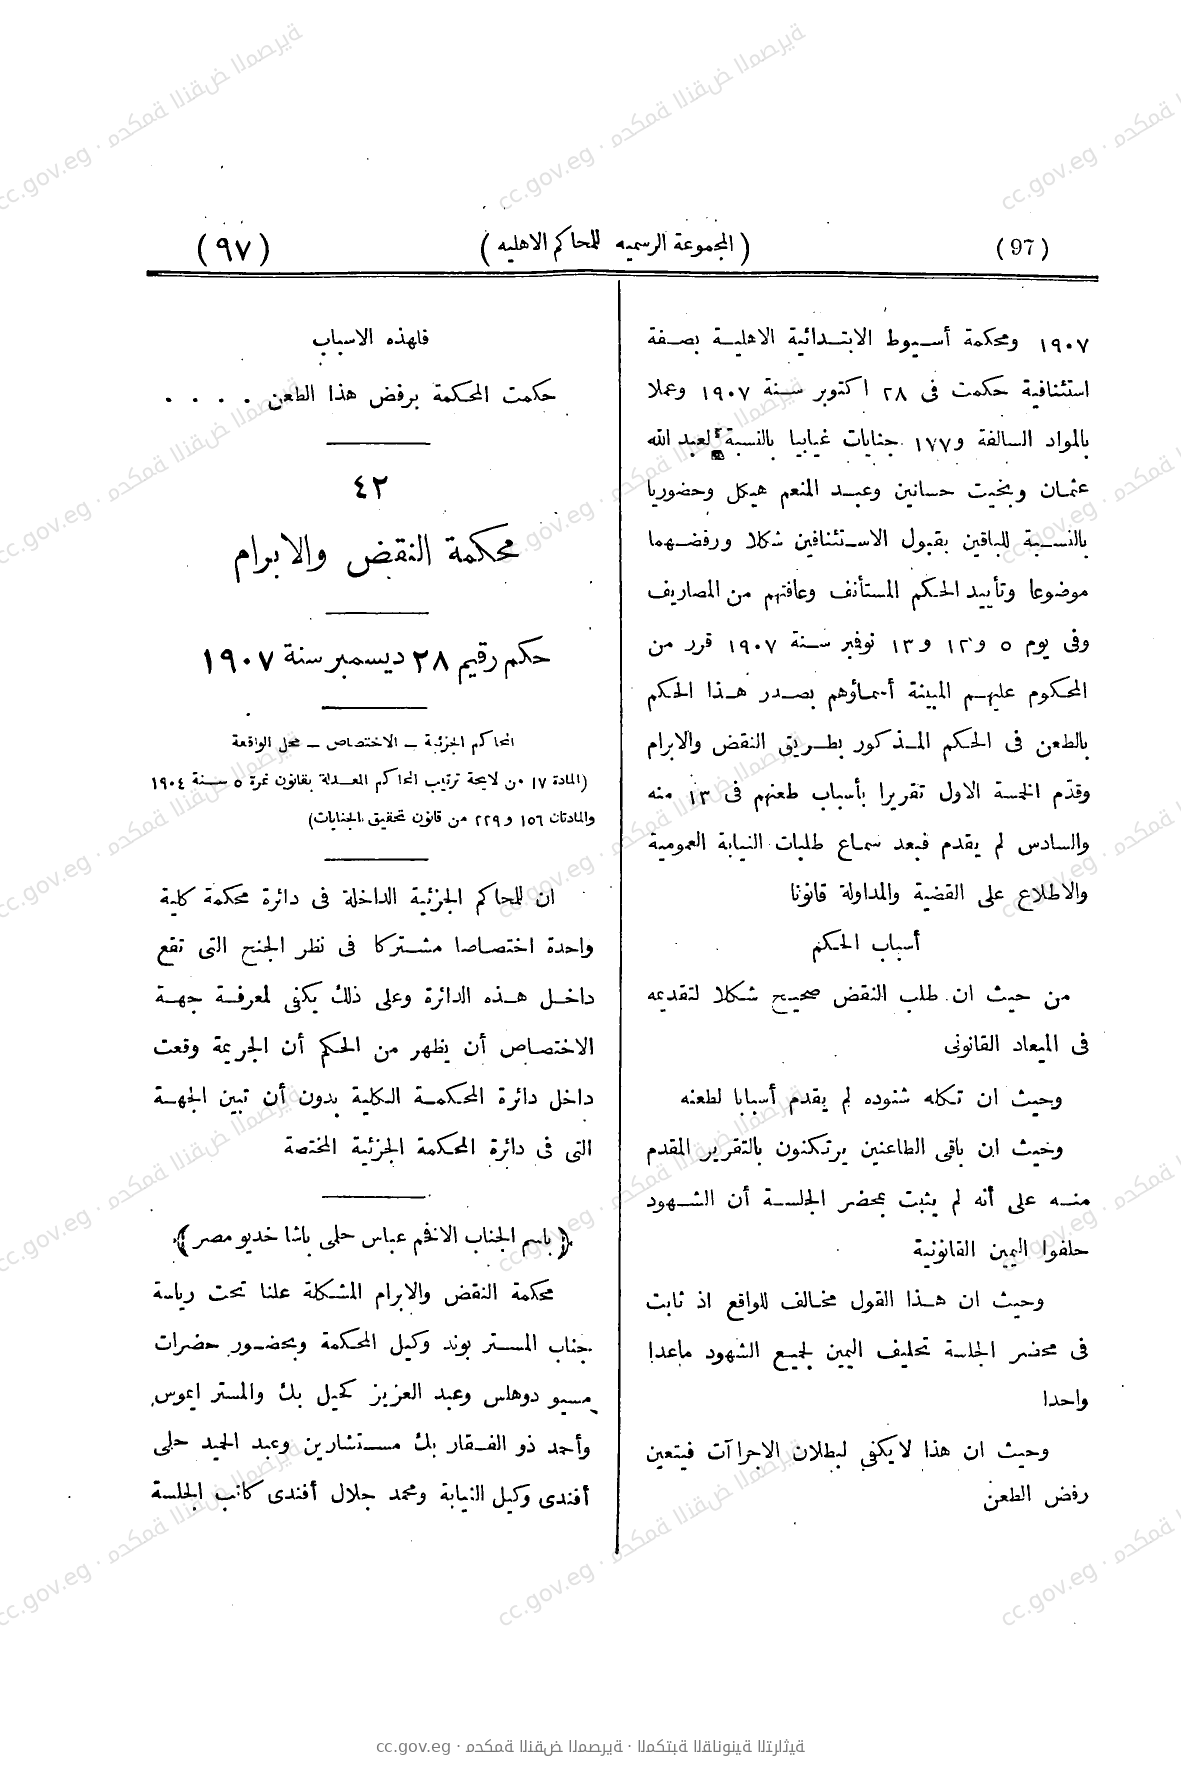 (97) (المجموعة الرسميه للمحاكم الاهليه) (٩٧)
١٩٠٧ ومحكمة أسيوط الابتدائية الاهلية بصفة
استئنافية حكمت فى ٢٨ اكتوبر سنة ١٩٠٧ وعملا
بالمواد السالفة و١٧٧ جنايات غيابيا بالنسبة لعبد الله
عثمان وبخيت حسانين وعبد المنعم هيكل وحضوريا
بالنسبة للباقين بقبول الاستئنافين شكلا ورفضهما
موضوعا وتأييد الحكم المستأنف وعافتهم من المصاريف
وفى يوم ٥ و١٢ و١٣ نوفمبر سنة ١٩٠٧ قرر من
المحكوم عليهم المبينة أسماؤهم بصدر هذا الحكم
بالطعن فى الحكم المذكور بطريق النقض والابرام
وقدّم الخمسة الاول تقريرا بأسباب طعنهم فى ١٣ منه
والسادس لم يقدم فبعد سماع طلبات النيابة العمومية
والاطلاع على القضية والمداولة قانونا
أسباب الحكم
من حيث ان طلب النقض صحيح شكلا لتقديمه
فى الميعاد القانونى
وحيث ان تكله شنوده لم يقدم أسبابا لطعنه
وحيث ان باقى الطاعنين يرتكنون بالتقرير المقدم
منه على أنه لم يثبت بمحضر الجلسة أن الشهود
حلفوا اليمين القانونية
وحيث ان هذا القول مخالف للواقع اذ ثابت
فى محضر الجلسة تحليف اليمين لجميع الشهود ماعدا
واحدا
وحيث ان هذا لا يكفي لبطلان الاجراآت فيتعين
رفض الطعن
فلهذه الاسباب
حكمت المحكمة برفض هذا الطعن . . . .
٤٢
محكمة النقض والابرام
حكم رقيم ٢٨ ديسمبر سنة ١٩٠٧
المحاكم الجزئية – الاختصاص – محل الواقعة
(المادة ١٧ من لايحة ترتيب المحاكم المعدلة بقانون نمرة ٥ سنة ١٩٠٤
والمادتان ١٥٦ و٢٢٩ من قانون تحقيق الجنايات)
ان للمحاكم الجزئية الداخلة فى دائرة محكمة كلية
واحدة اختصاصا مشتركا فى نظر الجنح التى تقع
داخل هذه الدائرة وعلى ذلك يكفي لمعرفة جهة
الاختصاص أن يظهر من الحكم أن الجريمة وقعت
داخل دائرة المحكمة الكلية بدون أن تبين الجهة
التى فى دائرة المحكمة الجزئية المختصة
﴿باسم الجناب الافخم عباس حلمى باشا خديو مصر﴾
محكمة النقض والابرام المشكلة علنا تحت رياسة
جناب المستر بوند وكيل المحكمة وبحضور حضرات
مسيو دوهلس وعبد العزيز كحيل بك والمستر ايموس
وأحمد ذو الفقار بك مستشارين وعبد الحميد حلمى
أفندى وكيل النيابة ومحمد جلال أفندى كاتب الجلسة
cc.gov.eg · محكمة النقض المصرية · المكتبة القانونية التراثية